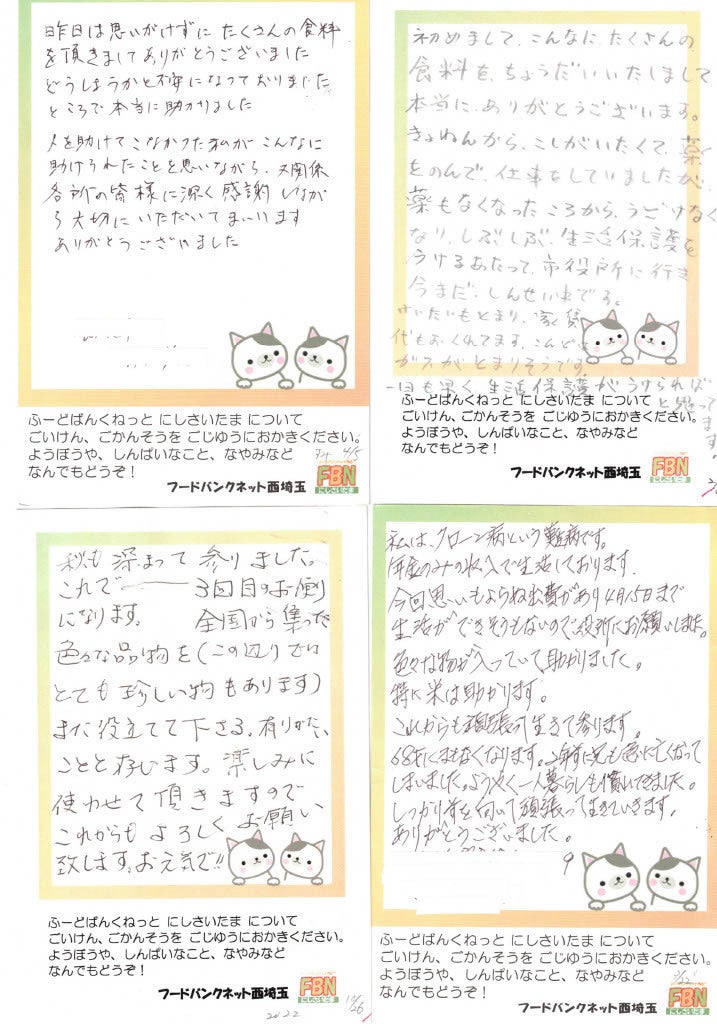 昨日は思いがけずに たくさんの食料
を頂きましてありがとうございました
どうしようかと不安になっておりました
ところで本当に助かりました
人を助けてこなかった私が こんなに
助けられたことを思いながら、又関係
各所の皆様に深く感謝しなが
ら大切にいただいてまいります
ありがとうございました
ふーどばんくねっと にしさいたま について
ごいけん、ごかんそうを ごじゆうにおかきください。
ようぼうや、しんぱいなこと、なやみなど
なんでもどうぞ！
4/5
フードバンクネット西埼玉
FBN
にしさいたま
初めまして、こんなに たくさんの
食料を、ちょうだいいたしまして
本当に、ありがとうございます。
きょねんから、こしがいたくて、薬
をのんで、仕事をしていましたが、
薬もなくなったころから、うごけなく
なり、しぶしぶ、生活保護を
うけるあたって、市役所に行き
今まだ、しんせい中です。
けいたいもとまり、家賃
代もおくれてます、こんど
ガスがとまりそうです
一日も早く 生活保護がうけられれば
と思ってます。
ふーどばんくねっと にしさいたま について
ごいけん、ごかんそうを ごじゆうにおかきください。
ようぼうや、しんぱいなこと、なやみなど
なんでもどうぞ！
フードバンクネット西埼玉
FBN
にしさいたま
秋も 深まって 参りました。
これで 3回目のお便り
になります。 全国から集った
色々な品物を(この辺りでは
とても 珍しい物 もあります)
また役立てて下さる、有りがたい
ことと存じます。楽しみに
使わせて 頂きますので
これからも よろしく お願い
致します。お元気で!!
ふーどばんくねっと にしさいたま について
ごいけん、ごかんそうを ごじゆうにおかきください。
ようぼうや、しんぱいなこと、なやみなど
なんでもどうぞ！
フードバンクネット西埼玉
FBN
にしさいたま
10/26
2022
私は、クローン病という難病です。
年金のみの収入で生活しております。
今回思いもよらぬ出費があり4月15日まで
生活ができそうもないので役所にお願いしました。
色々な物が入っていて助かりました。
特に米は助かります。
これからも頑張って生きて参ります。
68才にまもなくなります。2年前に兄も急に亡くなって
しまいました。ようやく一人暮らしも慣れてきました。
しっかり前を向いて頑張って生きていきます。
ありがとうございました。
ふーどばんくねっと にしさいたま について
ごいけん、ごかんそうを ごじゆうにおかきください。
ようぼうや、しんぱいなこと、なやみなど
なんでもどうぞ！
フードバンクネット西埼玉
FBN
にしさいたま